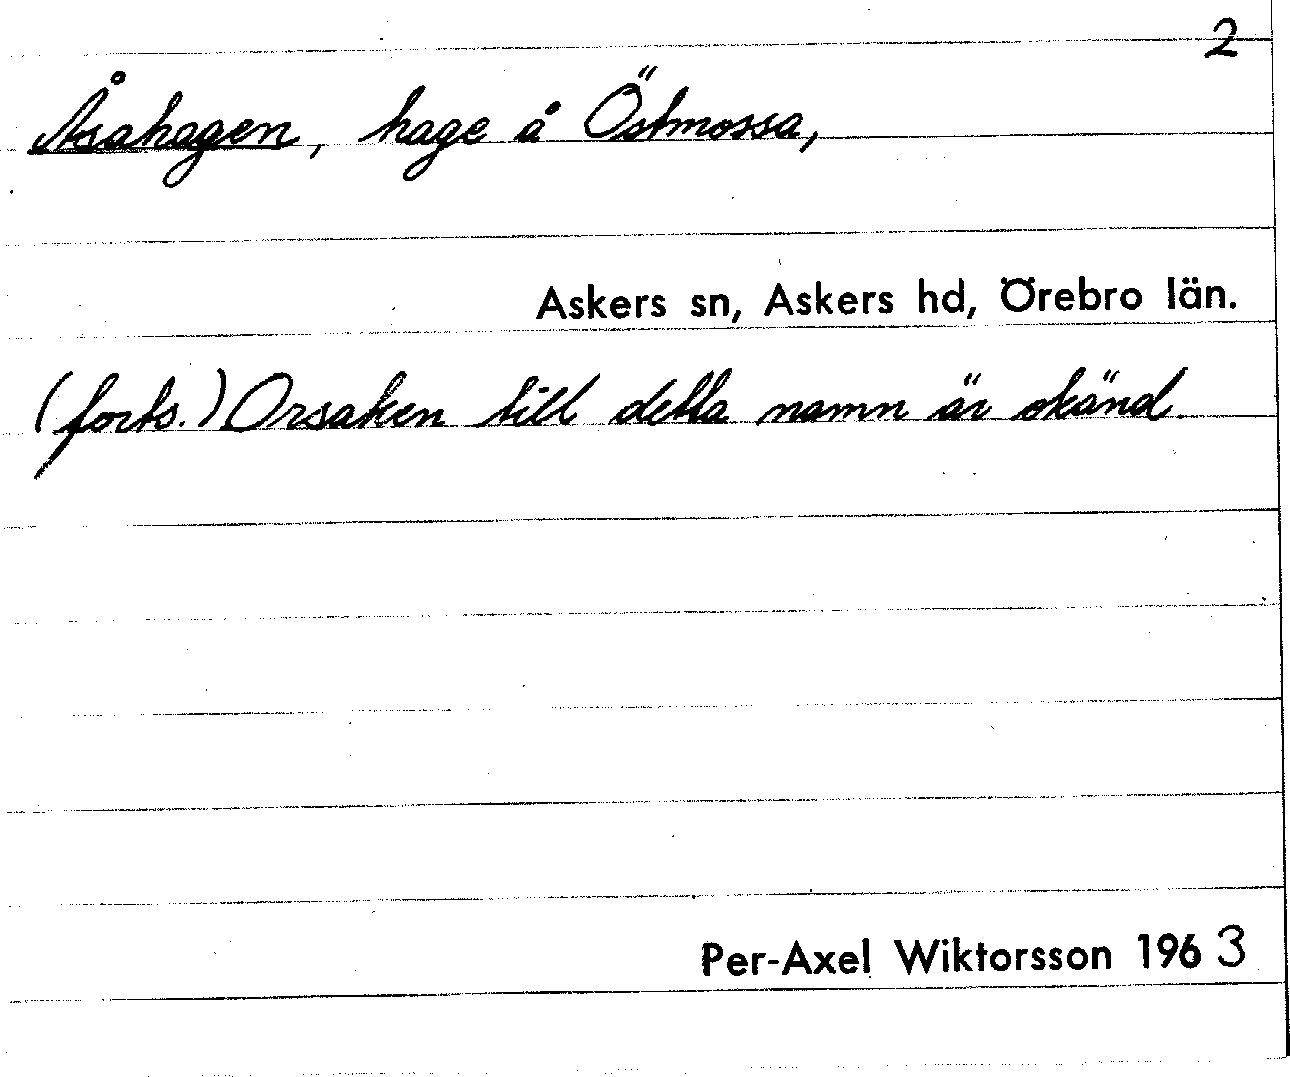 2
Åsahagen, hage å Östmossa,
Askers sn, Askers hd, Örebro län.
(forts.) Orsaken till detta namn är okänd.
Per-Axel Wiktorsson 1963